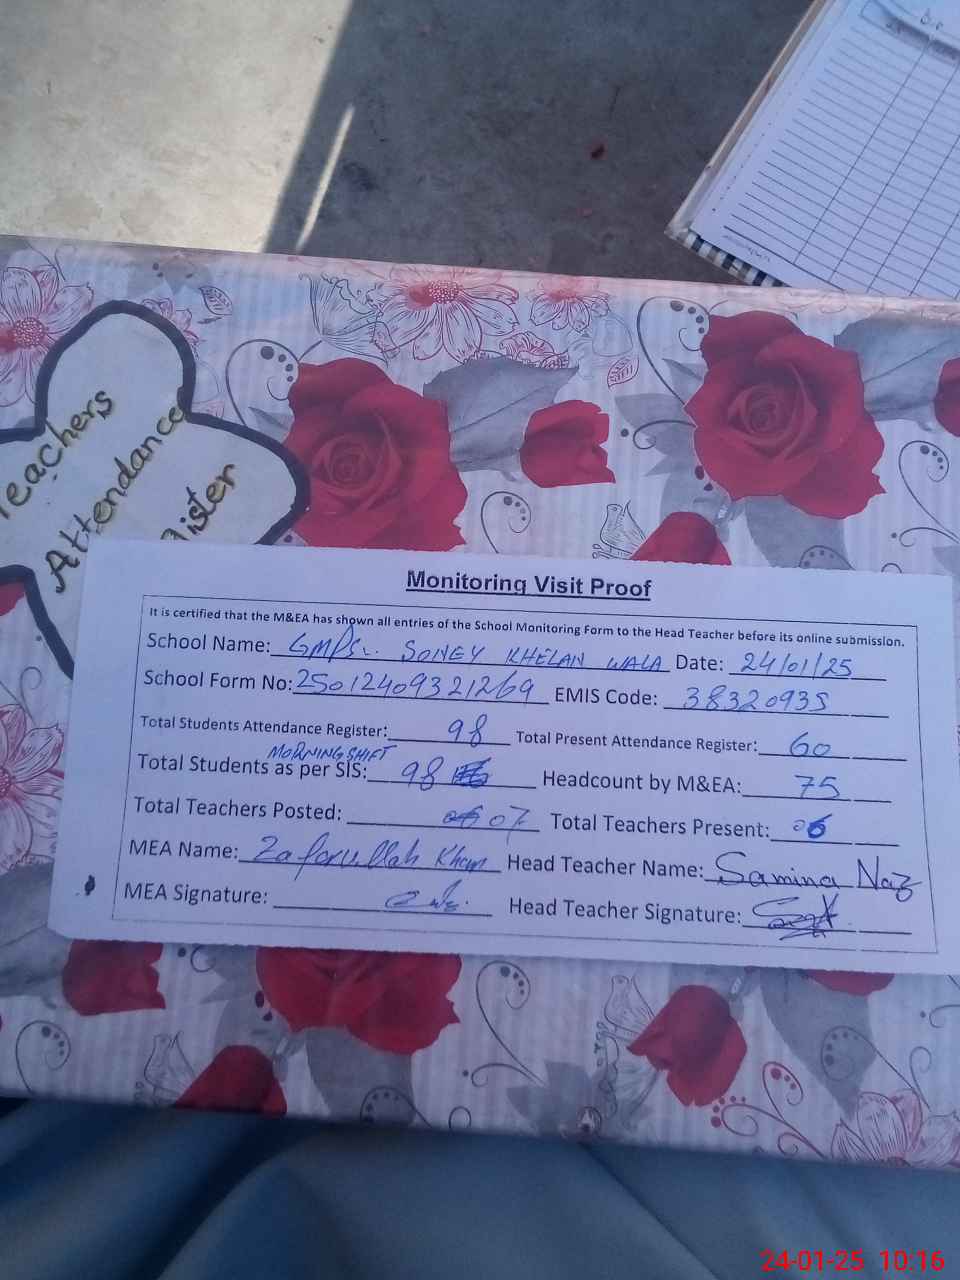 Teachers
Attendance
ister
Monitoring Visit Proof
It is certified that the M&EA has shown all entries of the School Monitoring Form to the Head Teacher before its online submission.
School Name: GMPS.. SONEY KHELAN WALA Date: 24/01/25
School Form No: 25012409321269 EMIS Code: 38320935
Total Students Attendance Register: 98 Total Present Attendance Register: 60
MORNING SHIFT
Total Students as per SIS: 98 Headcount by M&EA: 75
Total Teachers Posted: 07 Total Teachers Present: 06
MEA Name: Zafarullah Khan Head Teacher Name: Samina Naz
MEA Signature: Head Teacher Signature:
24-01-25 10:16